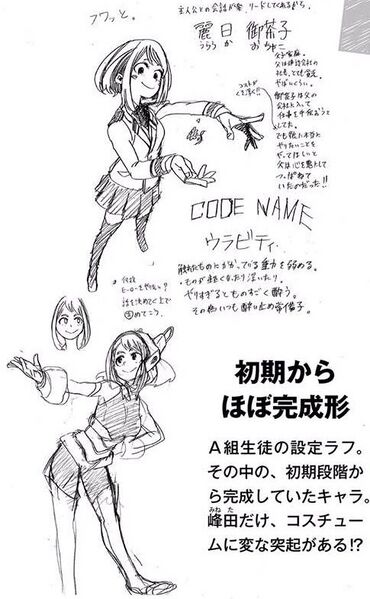 フワッと。
主人公との会話が多 リードしてくれるから。
麗日 御茶子
うららか おちゃこ
父子家庭。
父は建設会社の
社長、でも貧乏。
やばいくらい。
御茶子は父の
会社に入って
仕事を手伝おうと
してた。
でも娘に本当に
やりたいことを
やってほしいと
父は心を鬼にして
つっぱねて
いたのだった!!
CODE NAME
ウラビティ
触れたものにかかっている重力を弱める。
・ものが軽くなったり浮いたり。
やりすぎるとものすごく酔う。
その為いつも酔い止め常備。
話を決めてく上で
初期から
ほぼ完成形
A組生徒の設定ラフ。
その中の、初期段階か
ら完成していたキャラ。
みねた
峰田だけ、コスチュー
ムに変な突起がある!?